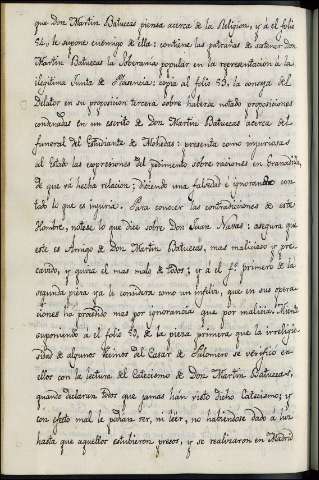 que Don Martin Batuecas piensa acerca de la Religion, y á el folio
84, le supone enemigo de ella: contiene las patrañas de sostener Don
Martin Batuecas la Soberania popular en la representacion á la
ilegitima Junta de Plasencia: copia al folio 83, la conseja del
Delator en su proposicion tercera sobre haberse notado proposiciones
condenadas en un escrito de Don Martin Batuecas acerca del
funeral del Estudiante de Mohedas: presenta como injuriosas
al Estado las expresiones del pedimento sobre raciones en Granadilla,
de que va hecha relacion; diciendo una falsedad é ignorando con
todo lo que es injuria. Para conocer las contradicciones de este
Hombre, notese lo que dice sobre Don Juan Naves: asegura que
este es Amigo de Don Martin Batuecas, mas malicioso y pre
cavido, y quiza el mas malo de todos; y á el f.º primero de la
segunda pieza ya le considera como un infeliz, que en sus opera-
ciones ha procedido mas por ignorancia que por malicia. Miente
suponiendo á el folio 89, de la pieza primera que la irreligio
sidad de algunos Vecinos del Casar de Palomero se verificó en
ellos con la lectura del Catecismo de Don Martin Batuecas,
quando declaran todos que jamas han visto dicho Catecismo; y
con efecto mal le podian ver, ni leer, no habiendose dado á luz
hasta que aquellos estubieron presos, y se realizaron en Madrid